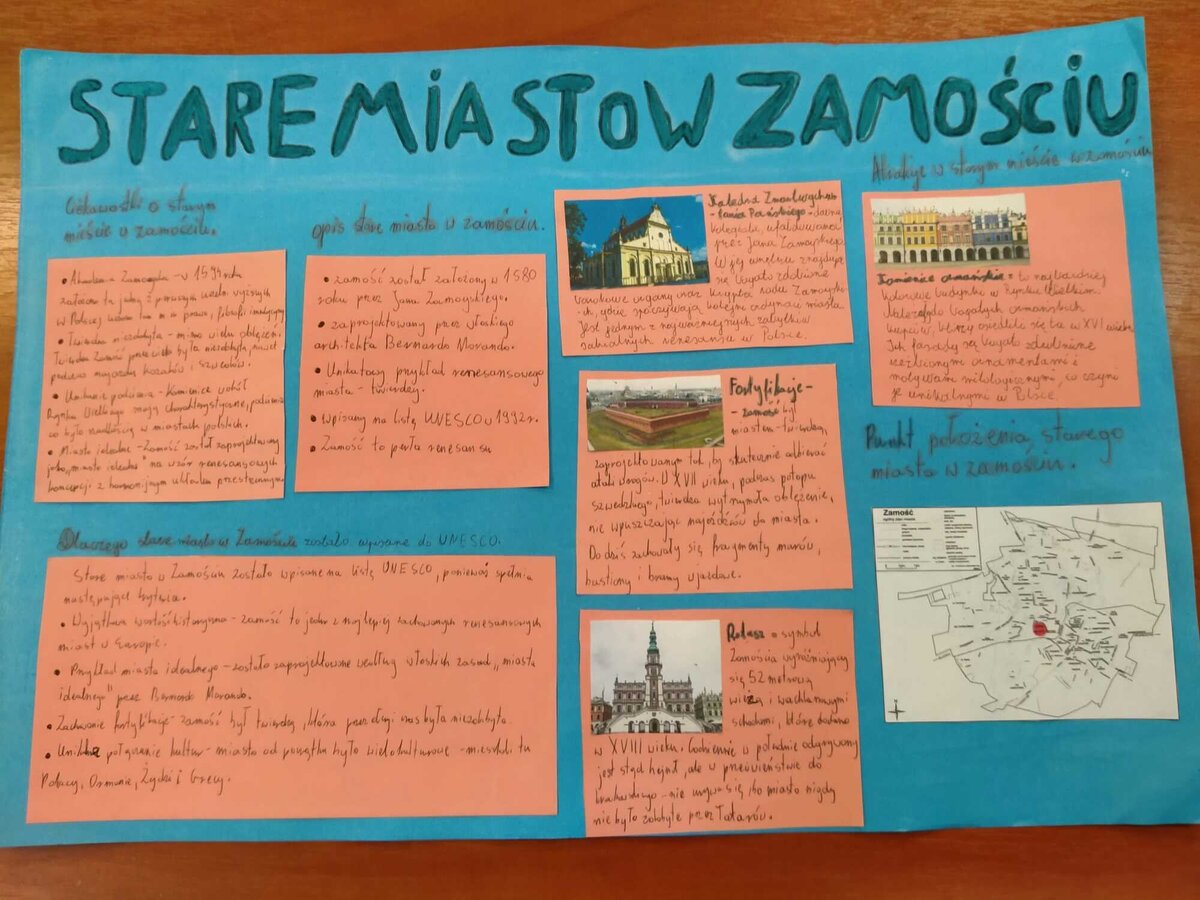 STARE MIASTO W ZAMOŚCIU
Ciekawostki o starym
mieście w zamościu.
• Akademia Zamojska - w 1594 roku
założona tu jedną z pierwszych uczelni wyższych
w Polsce,
• Twierdza niezdobyta - mimo wielu oblężeń
Twierdza Zamość przez wieki była niezdobyta, nawet
podczas najazdów kozaków i szwedów.
• Unikalne podcienia - Kamienice wokół
Rynku Wielkiego mają charakterystyczne, podcienia
co było rzadkością w miastach polskich.
• Miasto idealne - Zamość został zaprojektowany
jako "miasto idealne" na wzór renesansowych
koncepcji z harmonijnym układem przestrzennym.
opis stare miasta w zamościu.
• zamość został założony w 1580
roku przez Jana Zamoyskiego.
• zaprojektowany przez włoskiego
architekta Bernardo Morando.
• Unikatowy przykład renesansowego
miasta - twierdzy.
• wpisany na listę UNESCO w 1992 r.
• Zamość to perła renesansu
Dlaczego stare miasto w Zamościu zostało wpisane do UNESCO.
Stare miasto w Zamościu zostało wpisane na listę UNESCO, ponieważ spełnia
następujące kryteria.
• Wyjątkowa wartość historyczna - zamość to jedno z najlepiej zachowanych renesansowych
miast w Europie.
• Przykład miasta idealnego - zostało zaprojektowane według włoskich zasad "miasta
idealnego" przez Bernardo Morando.
• Zachowane fortyfikacje - zamość był twierdzą, która przez długi czas była niezdobyta
• Unikalne połączenie kultur - miasto od początku było wielokulturowe - mieszkali tu
Polacy, Ormianie, Żydzi i Grecy.
Katedra Zmartwychws-
tania Pańskiego - dawna
kolegiata, ufundowana
przez Jana Zamoyskiego.
W jej wnętrzu znajdują
się bogato zdobione
barokowe organy oraz krypta rodu Zamoyski-
ch, gdzie spoczywają kolejne ordynaci miasta.
Jest jednym z najważniejszych zabytków
sakralnych renesansu w Polsce.
Fortyfikacje -
- zamość był
miastem - twierdzą,
zaprojektowanym tak, by skutecznie odbierać
ataki wrogów. W XVII wieku, podczas potopu
szwedzkiego, twierdza wytrzymała oblężenie,
nie wpuszczając najeźdźców do miasta.
Do dziś zachowały się fragmenty murów,
bastiony i bramy wjazdowe.
Ratusz - symbol
Zamościa wyróżniający
się 52 metrową
wieżą i wachlarzowymi
schodami, które dodano
w XVIII wieku. Codziennie w południe odgrywany
jest stąd hejnał, ale w przeciwieństwie do
krakowskiego - nie urywa się, bo miasto nigdy
nie było zdobyte przez Tatarów.
Atrakcje w starym mieście w zamościu
Kamienice ormiańskie - to najbardziej
kolorowe budynki w Rynku Wielkim.
Należały do bogatych ormiańskich
kupców, którzy osiedlili się tu w XVI wieku
Ich fasady są bogato zdobione
rzeźbionymi ornamentami i
motywami mitologicznymi, co czyni
je unikalnymi w Polsce.
Punkt położenia starego
miasta w zamościu.
Zamość